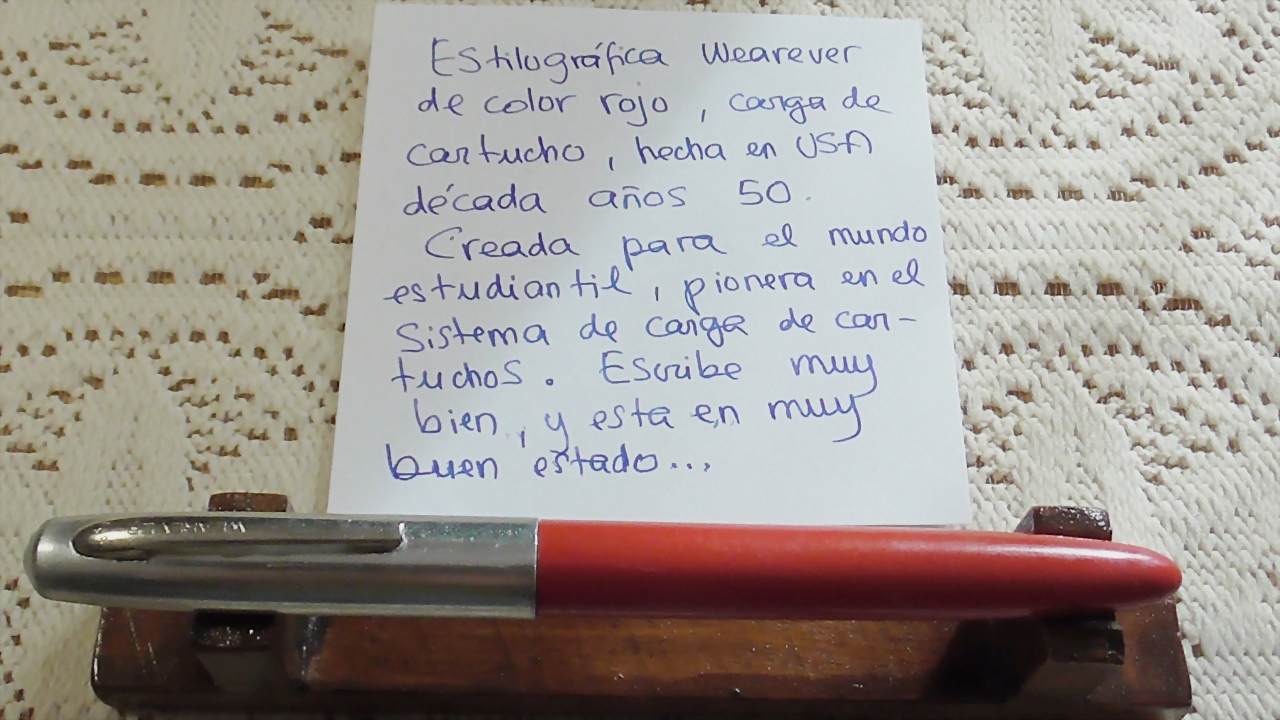 Estilográfica Wearever
de color rojo, carga de
cartucho, hecha en USA
década años 50.
Creada para el mundo
estudiantil, pionera en el
sistema de carga de car-
tuchos. Escribe muy
bien, y esta en muy
buen estado...